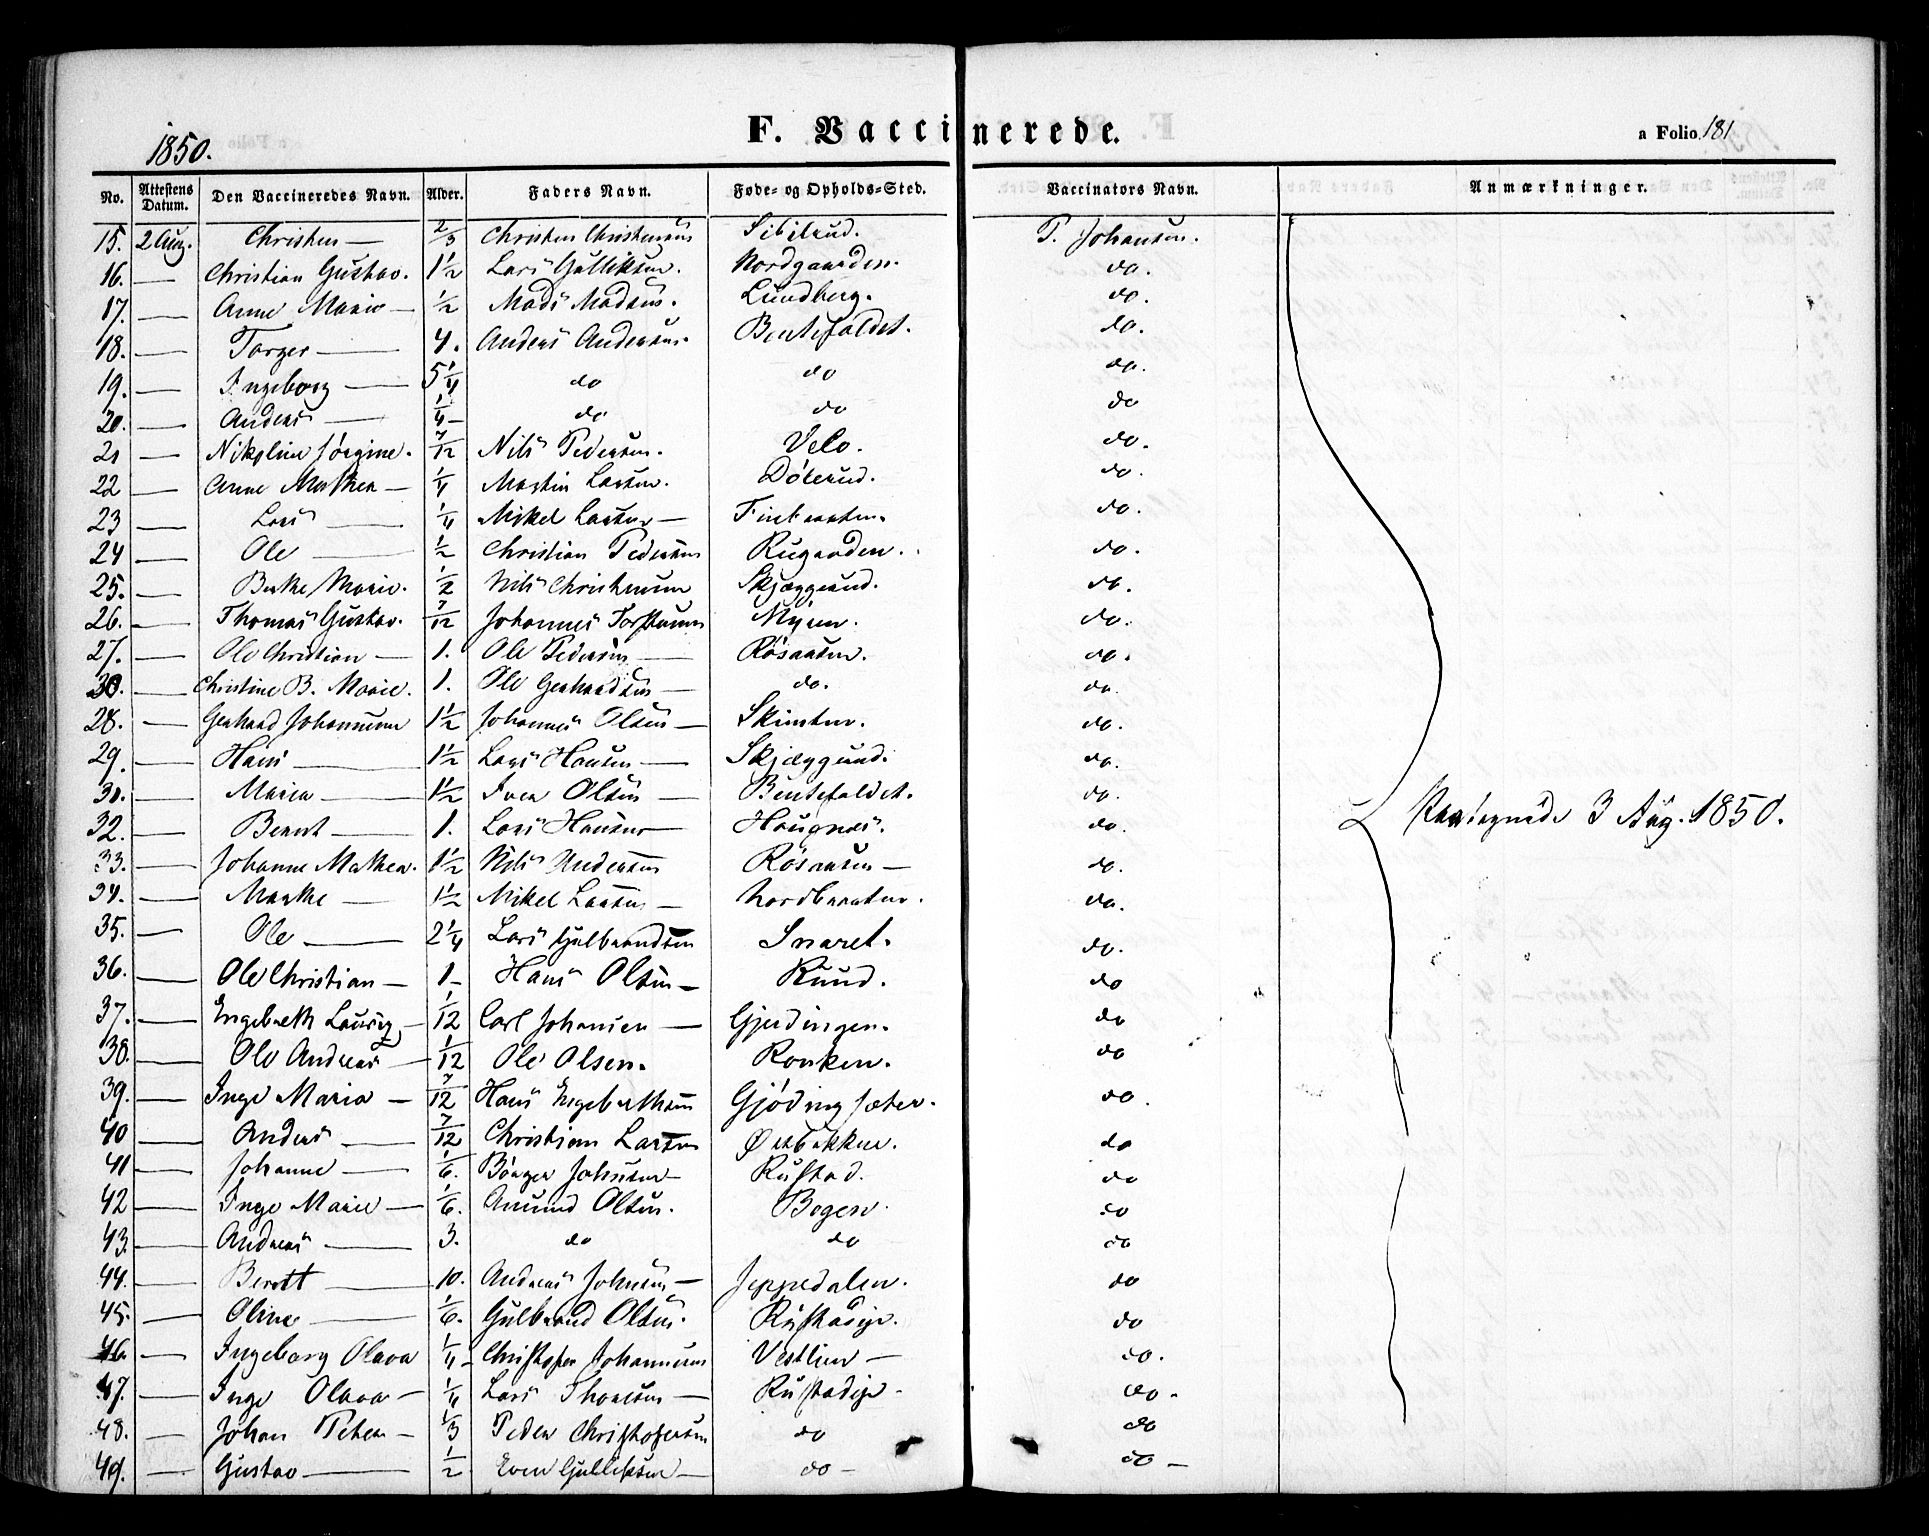 1850.
F. Vaccinerede.
a Folio 181
No. Attestens Datum. Den Vaccineredes Navn. Alder. Faders Navn. Føde- og Opholds-Sted. Vaccinators Navn. Anmærkninger.
15. 2 Aug. Christen — 2/3 Christen Christensen Sibilrud. P. Johansen.
16. — Christian Gustav. 1 1/2 Lars Gulliksen. Nordgaarden. do.
17. — Anne Marie — 1/2 Mads Madsen. Lundberg. do.
18. — Torger — 4. Anders Andersen. Bentefaldet. do.
19. — Ingeborg — 5 1/4 do do do.
20. — Anders — 1/4 — do do do
21 — Nikoline Jørgine. 7/12 Nils Pedersen. Velo. do.
22 — Anne Mathea — 1/4 Martin Larsen. Dølerud. do.
23 — Lars — 1/4 Mikel Larsen — Finbraaten. do.
24 — Ole — 1/2 Christian Pedersen Rugaarden. do.
25. — Berthe Marie. 1/2 Nils Christensen Skjæggerud. do.
26. — Thomas Gustav. 7/12 Johannes Torstensen Myren. do.
27. — Ole Christian — 1. Ole Pedersen — Røsaasen. do.
30. — Christine B. Marie. 1. Ole Gerhardsen — do. do.
28. — Gerhard Johannesen 1 1/2 Johannes Olsen — Skinstuen. do.
29. — Hans — 1 1/2 Lars Hansen — Skjæggerud. do.
31. — Maren — 1 1/2 Iver Olsen — Bentefaldet. do.
32. — Bernt — 1. Lars Hansen — Haugnæs. do. Raataqnede 3 Aug. 1850.
33. — Johanne Mathea. 1 1/2 Nils Andersen Røsaasen — do.
34. — Marthe — 1 1/2 Mikel Larsen — Nordbraaten. do.
35. — Ole — 2 1/4 Lars Gulbrandsen Snaret. do.
36. — Ole Christian — 1 — Hans Olsen — Ruud. do
37. — Engebreth Lauritz — 1/12 Carl Johansen — Gjerdingen. do
38. — Ole Andreas — 1/12 Ole Olsen. Ronken. do
39. — Inge Maria — 7/12 Hans Engebrethsen Gjødingsæter. do.
40 — Anders — 7/12 Christian Larsen Østbakken. do
41 — Johanne — 1/6. Børger Johnsen — Rustad. do
42 — Inge Marie — 1/6. Amund Olsen. Bogen. do
43. — Andreas — 3. do do do
44. — Berntt — 10. Andreas Johnsen — Jeppedalen. do
45. — Oline — 1/6. Gulbrand Olsen. Rustadeje. do
46. — Ingeborg Olava 1/4 — Christofer Johannesen Vestlien — do.
47. — Inge Olava — 1/4 Lars Thoresen — Rustadeje — do.
48. — Johan Peter — 1/3 Peder Christofersen do do
49. — Gustav — 1/2 Even Gulliksen — do — do —